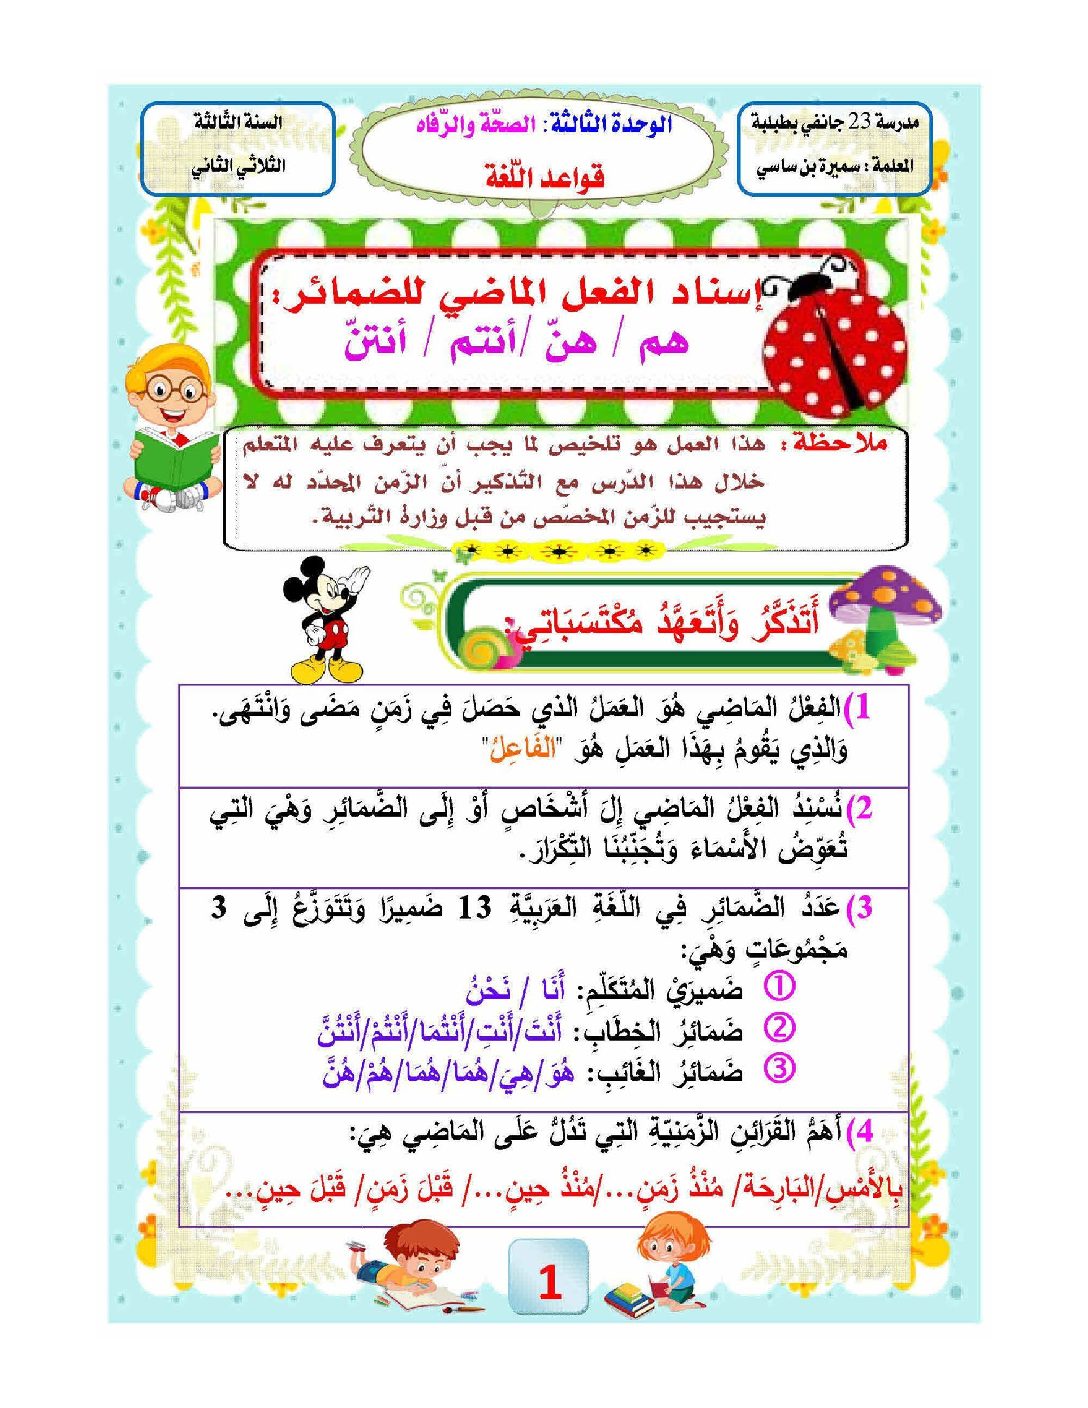 مدرسة 23 جانفي بطبلبة
المعلمة : سميرة بن ساسي
الوحدة الثالثة: الصحّة والرّفاه
قواعد اللّغة
السنة الثّالثة
الثلاثي الثاني
إسناد الفعل الماضي للضمائر:
هم / هنّ /أنتم / أنتنّ
ملاحظة : هذا العمل هو تلخيص لما يجب أن يتعرف عليه المتعلّم
خلال هذا الدّرس مع التّذكير أنّ الزّمن المحدّد له لا
يستجيب للزّمن المخصّص من قبل وزارة التّربية.
أَتَذَكَّرُ وَأَتَعَهَّدُ مُكْتَسَبَاتِي:
1)الفِعْلُ المَاضِي هُوَ العَمَلُ الذي حَصَلَ فِي زَمَنٍ مَضَى وَانْتَهَى.
وَالذِي يَقُومُ بِهَذَا العَمَلِ هُوَ "الفَاعِلُ"
2)نُسْنِدُ الفِعْلُ المَاضِي إِلَ أَشْخَاصٍ أَوْ إِلَى الضَّمَائِرِ وَهْيَ التِي
تُعَوِّضُ الأَسْمَاءَ وَتُجَنِّبُنَا التِّكْرَارَ.
3)عَدَدُ الضَّمَائِرِ فِي اللّغَةِ العَرَبِيَّةِ 13 ضَمِيرًا وَتَتَوَزَّعُ إِلَى 3
مَجْمُوعَاتٍ وَهْيَ:
① ضَميرَيْ المُتَكَلّمِ: أَنَا / نَحْنُ
② ضَمَائِرُ الخِطَابِ: أَنْتَ/أَنْتِ/أَنْتُمَا/أَنْتُمْ/أَنْتُنَّ
③ ضَمَائِرُ الغَائِبِ: هُوَ/هِيَ/هُمَا/هُمَا/هُمْ/هُنَّ
4)أَهَمُّ القَرَائِنِ الزَّمَنِيّةِ التِي تَدُلُّ عَلَى المَاضِي هِيَ:
بِالأَمْسِ/البَارِحَة/ مُنْذُ زَمَنٍ.../مُنْذُ حِينٍ.../ قَبْلَ زَمَنٍ/ قَبْلَ حِينٍ...
1